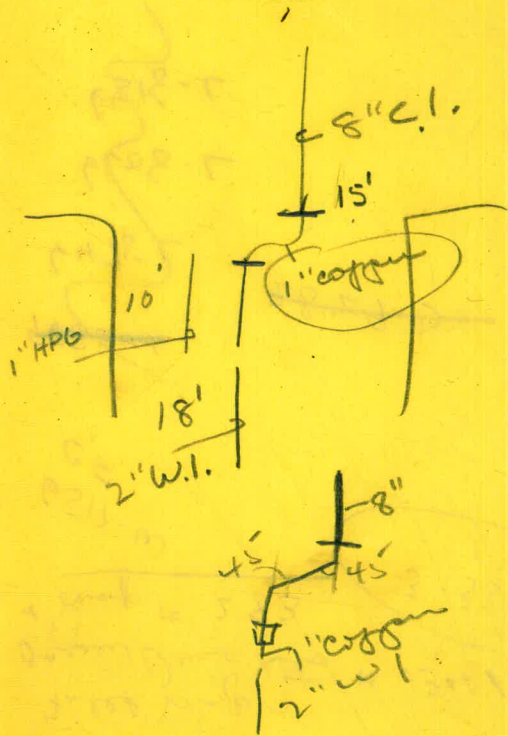 8" C.I.
15'
1" copper
10'
1" HPG
18'
2" W.I.
8"
45
45
1" copper
2" W I